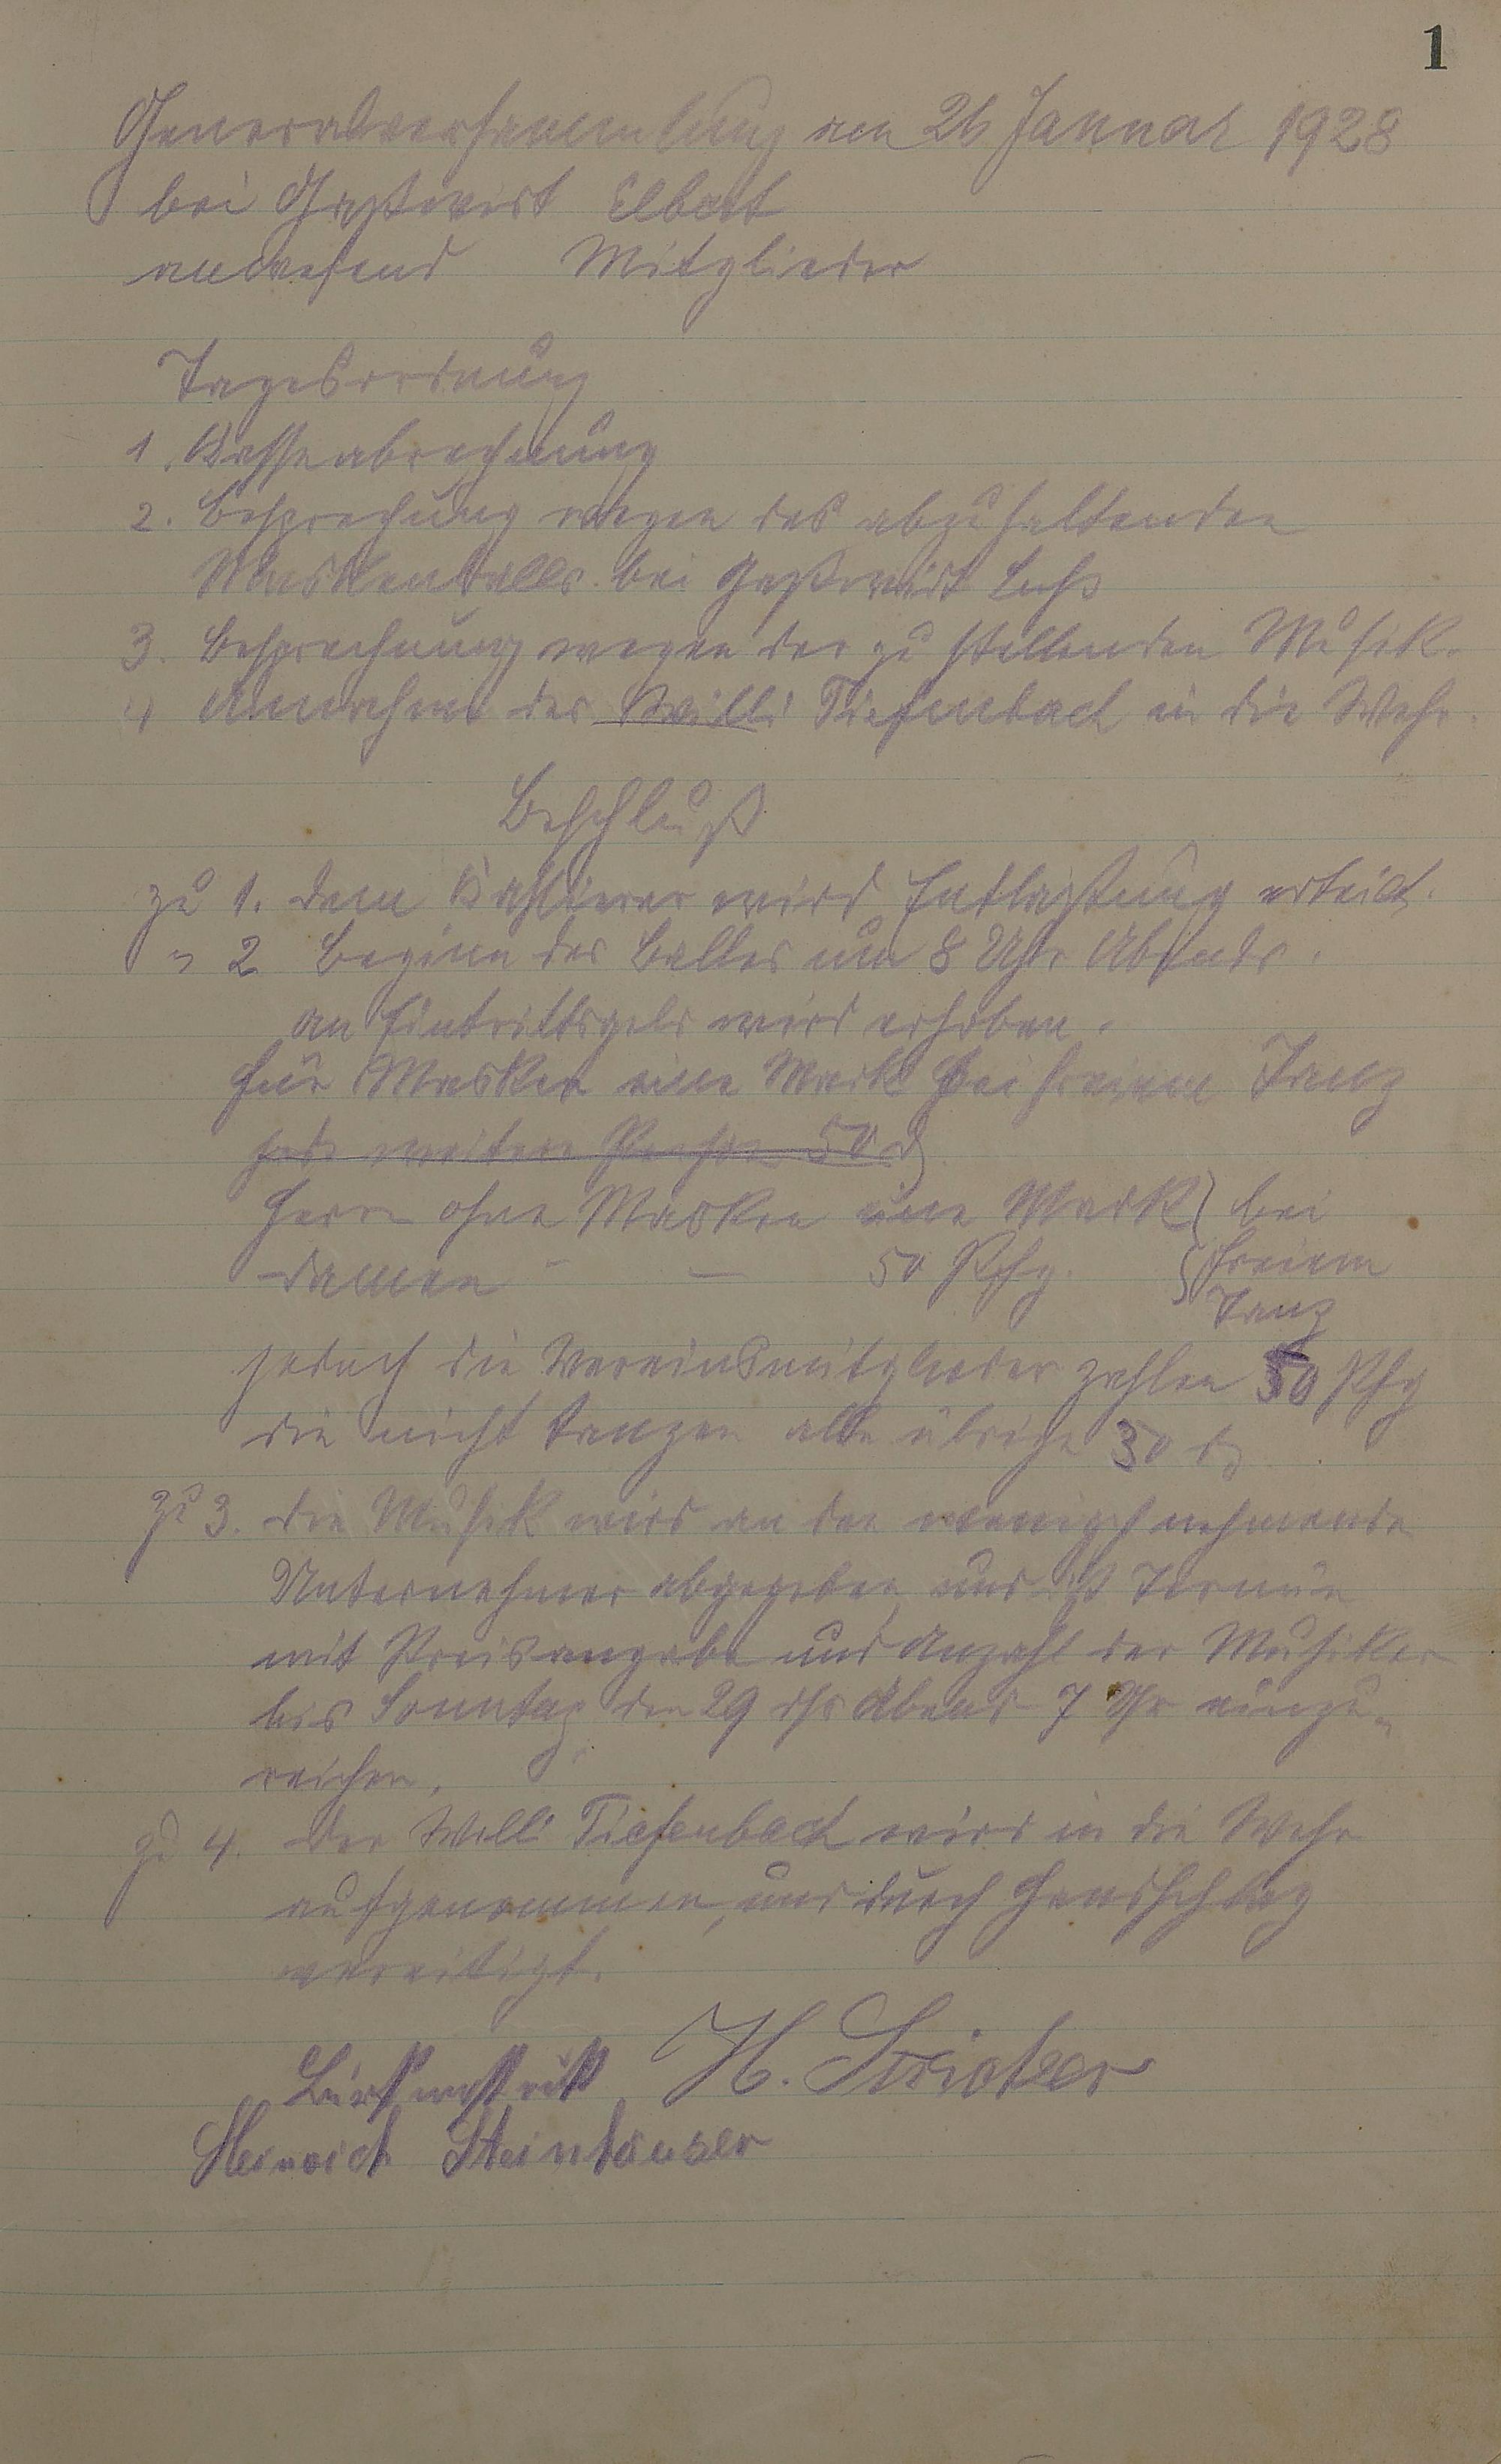 1
Generalversammlung am 26 Januar 1928
bei Gastwirt Elbert
anwesend Mitglieder
Tagesordnung
1. Kasseabrechnung
2. Besprechung wegen des abzuhaltenden
Maskenballs bei Gastwirt
3. Besprechnung wegen der zu stellenden Musik.
4 Annahme des Willi Tiefenbach in die Wehr.
Beschluß
zu 1. dem Kassierer wird Entlastung erteilt.
" 2 Beginn des Balles um 8 Uhr Abends.
an Eintrittsgeld wird erhoben.
für Masken eine Mark bei freiem Tanz
jede weitere Person 50 ₰
Herrn ohne Masken eine Mark } bei
damen " — 50 Pfg. } freiem
Tanz
jedoch die Vereinsmitglieder zahlen 50 Pfg
die nicht tanzen alle übrige 30 ₰
zu 3. die Musik wird an den wenigst nehmende
Unternehmer abgegeben, und ist Termin
mit Preisangabe und Anzahl der Musiker
bis Sonntag den 29 ds Abend 7 Uhr einzu-
reichen.
zu 4. Der Willi Tiefenbach wird in die Wehr
aufgenommen, und durch Handschlag
vereitigt.
H.
Heinrich Steinhäuser